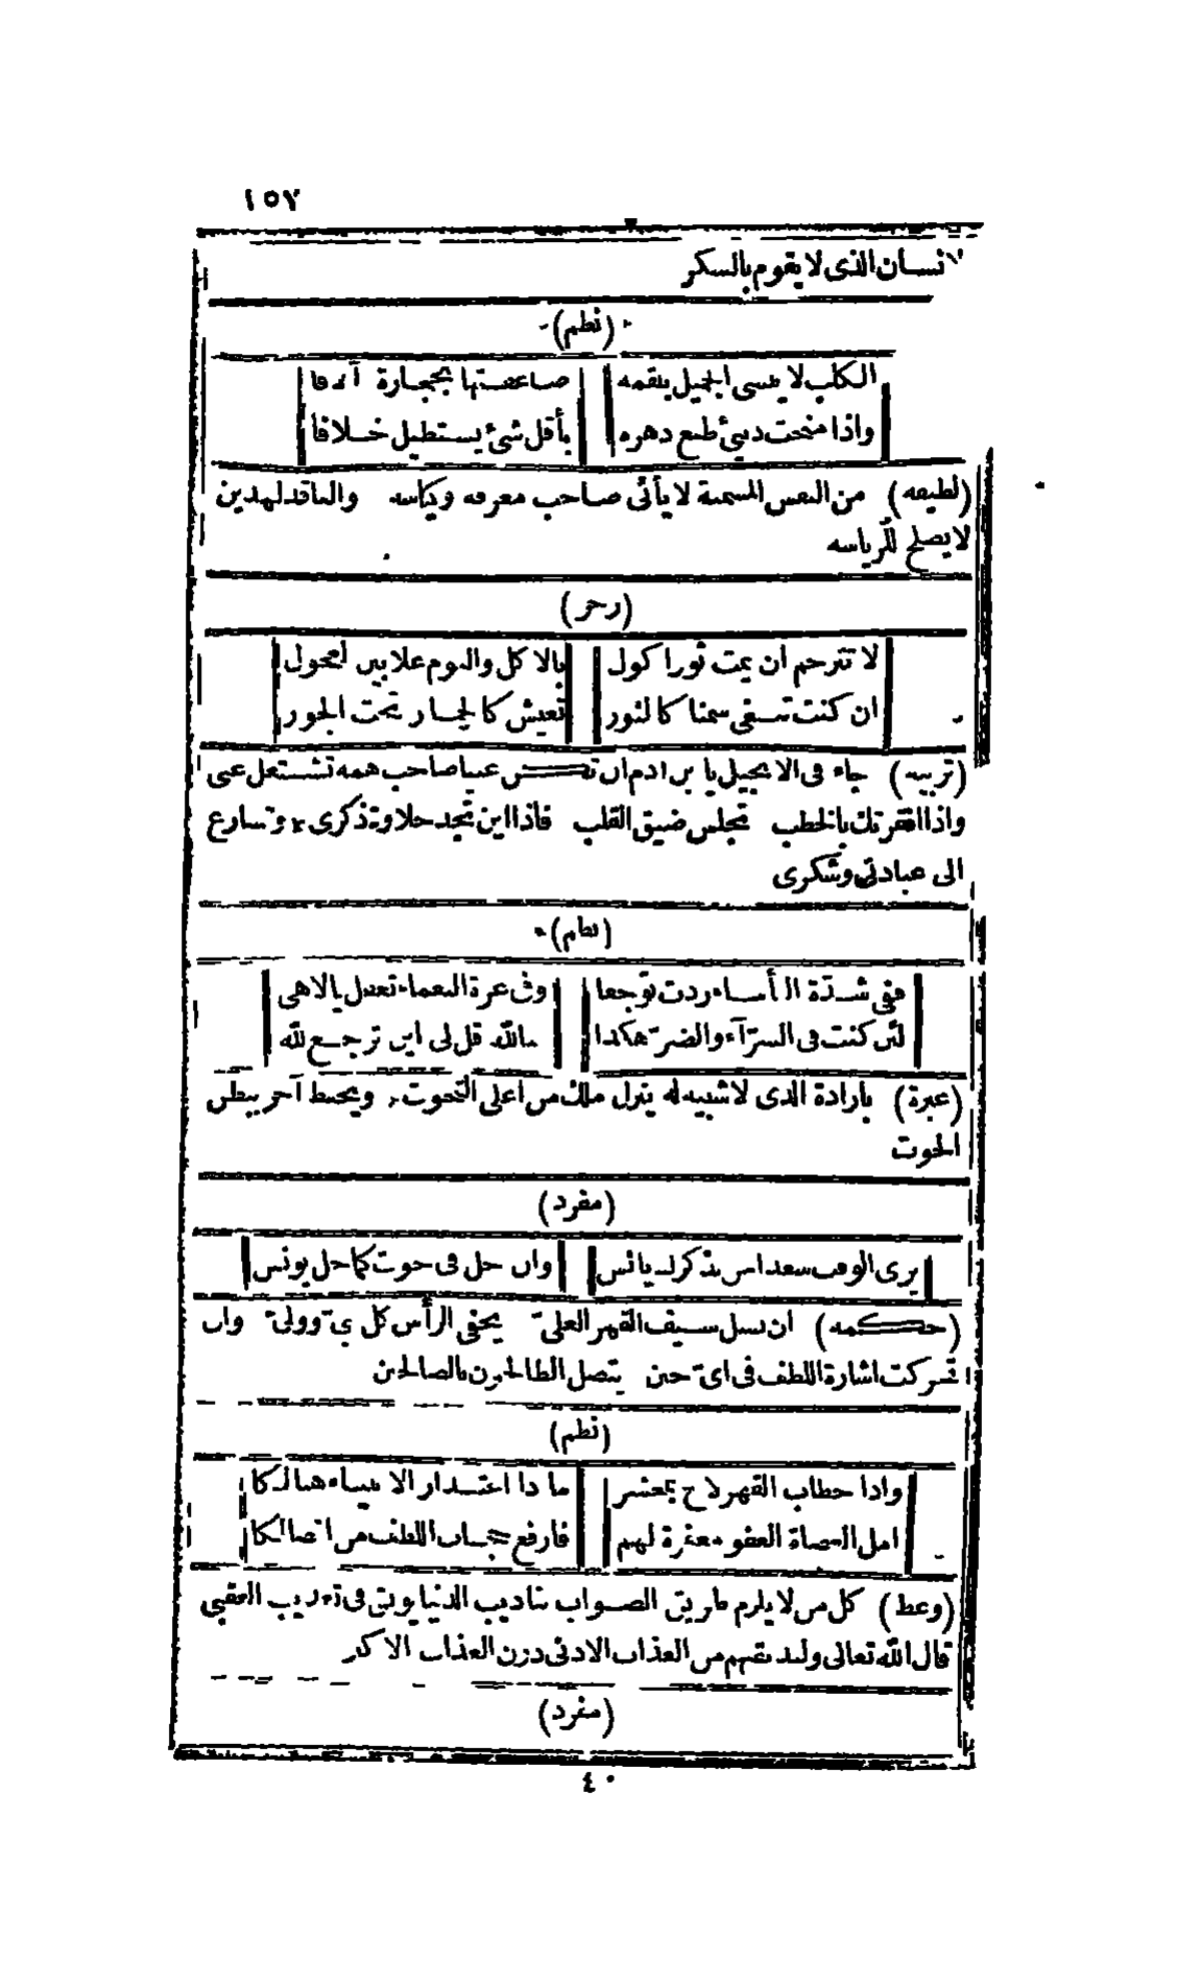 ١٥٧
لانسان الذى لا يقوم بالسكر
(نظم)
الكلب لا ينسى الجميل بلقمه صاعفتها بحجارة آلافا
واذا منحت دنئ طبع دهره بأقل شئ يستطيل خلافا
(لطيفه) من النفس المسمنة لا يأتى صاحب معرفه وكياسه والفاقد لهدين
لا يصلح للرياسه
(رجز)
لا تترحم ان يمت ثورا كول بالاكل والنوم علا بين العجول
ان كنت تبغى سمنا كالثور تعيش كالحمار تحت الجور
(تربيه) جاء فى الانجيل يا بن ادم ان تكن غنيا صاحب همه تشتغل عنى
واذا افقرتك بالخطب تجلس ضيق القلب فاذا اين تجد حلاوة ذكرى وتسارع
الى عبادتى وشكرى
(نظم)
ففى شدة البأساء زدت توجعا وفى عزة النعماء تعدل بالاهى
لئن كنت فى السرآء والضر هكذا بالله قل لى اين ترجع لله
(عبرة) بارادة الذى لا شبيه له ينزل ملك من اعلى التخوت ويحفظ آخر ببطن
الحوت
(مفرد)
يرى الوقت سعدا من بذكرك يانس وان حل فى حوت كما حل يونس
(حكمه) ان نسل سيف القهر العلى يخفى الرأس كل نبى وولى وان
تحركت اشارة اللطف فى اى حين يتصل الطالحون بالصالحين
(نظم)
واذا خطاب القهر لاح بمحشر ما ذا اعتذار الانبياء هنالكا
امل العصاة العفو مغفرة لهم فارفع حجاب اللطف من افضالكا
(وعظ) كل من لا يلزم طريق الصواب بتاديب الدنيا يوتى فى تعذيب العقبى
قال الله تعالى ولنذيقنهم من العذاب الادنى دون العذاب الاكبر
(مفرد)
٤٠